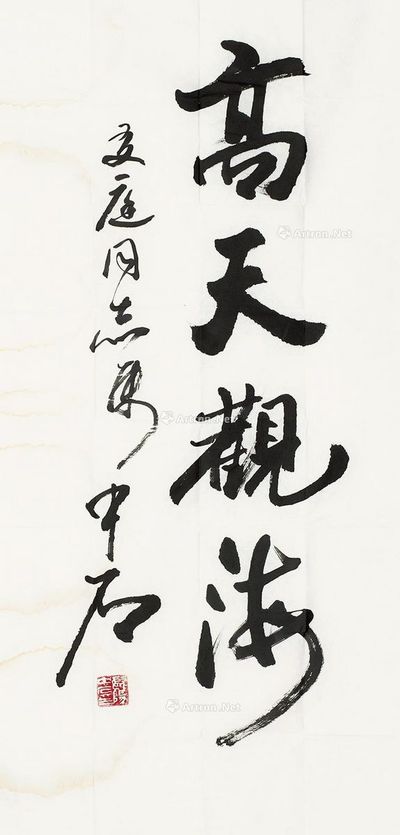 高天观海
友庭同志属 中石
Artron.Net
Artron.Net
Artron.Net